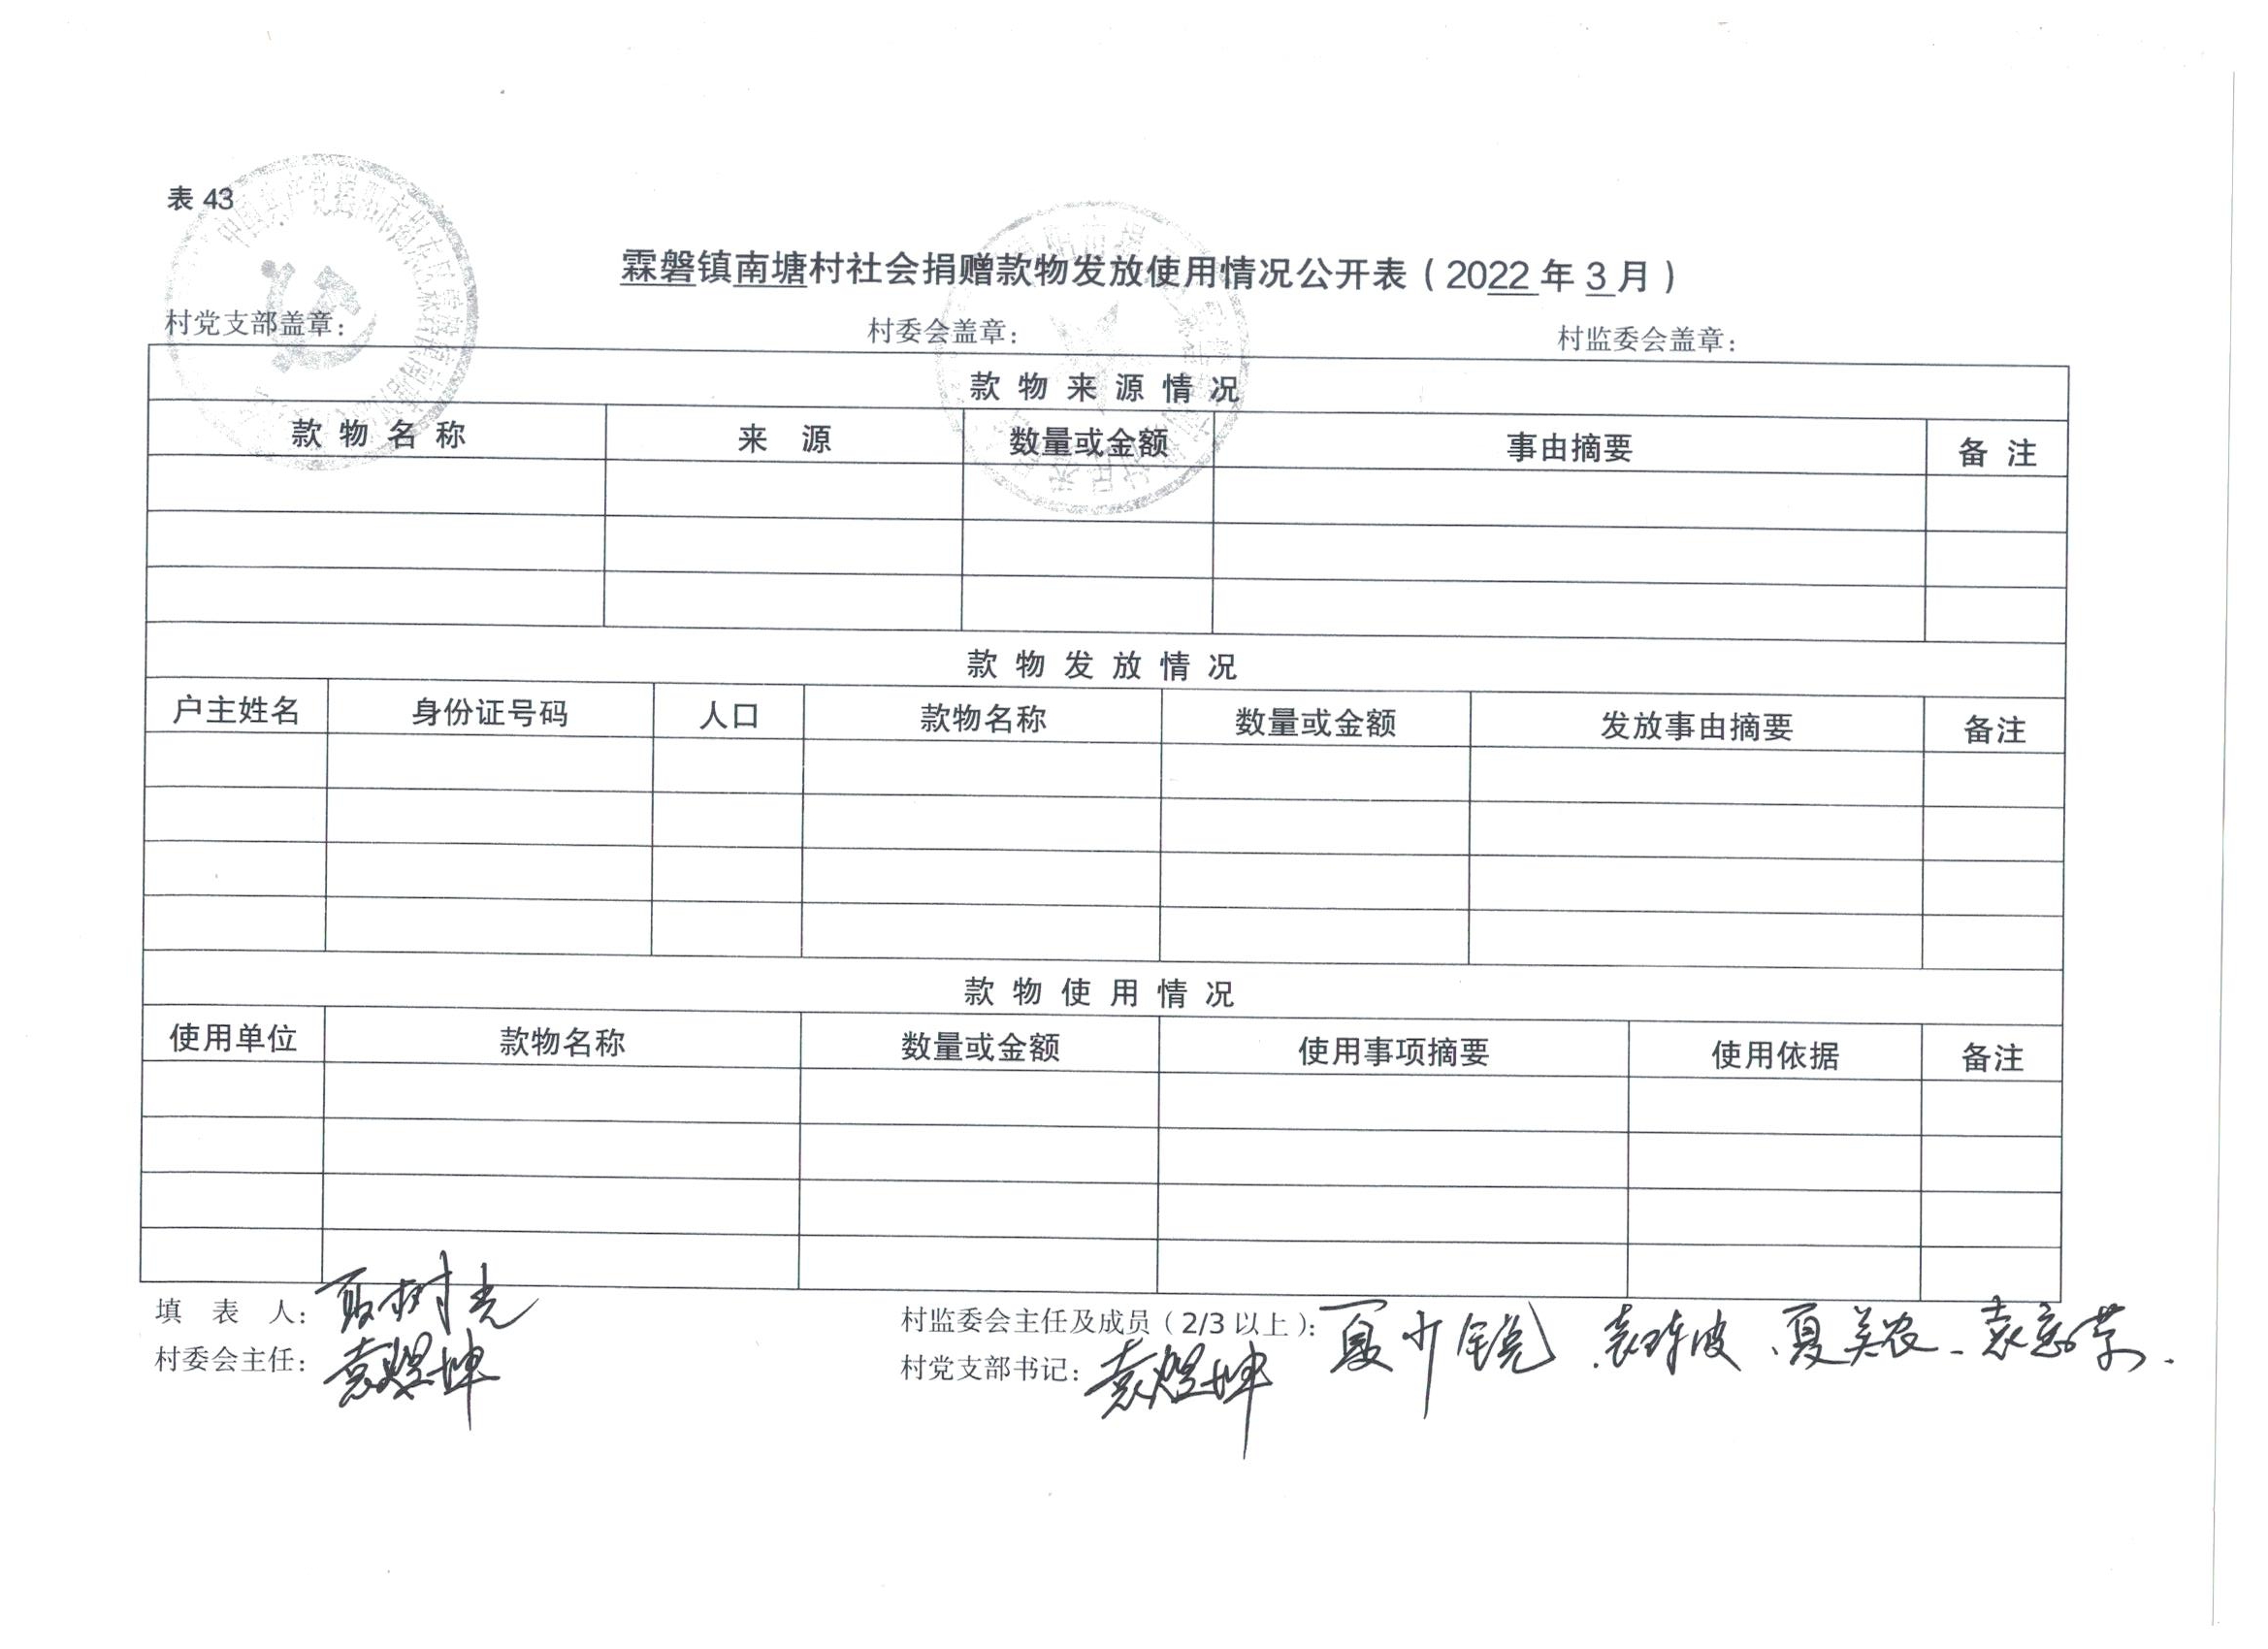 表 43
霖磐镇南塘村社会捐赠款物发放使用情况公开表（2022 年 3 月）
村党支部盖章： 村委会盖章： 村监委会盖章：
款 物 来 源 情 况
款 物 名 称 来 源 数量或金额 事由摘要 备 注
款 物 发 放 情 况
户主姓名 身份证号码 人口 款物名称 数量或金额 发放事由摘要 备注
款 物 使 用 情 况
使用单位 款物名称 数量或金额 使用事项摘要 使用依据 备注
填 表 人：夏树光 村监委会主任及成员（2/3 以上）：夏少锐 袁琼波、夏美农、
村委会主任：袁煜坤 村党支部书记：袁煜坤